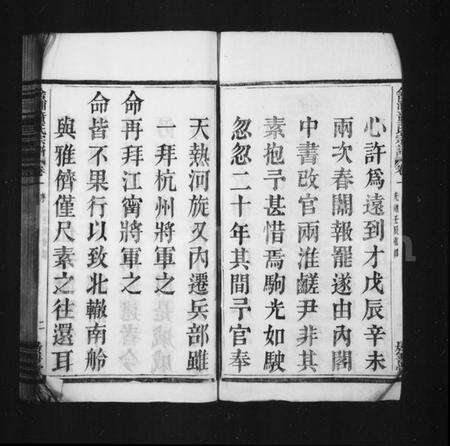 心許爲遠到才戊辰辛未
兩次春闈報罷遂由內閣
中書改官兩淮鹺尹非其
素抱予甚惜焉駒光如駛
忽忽二十年其間予官奉
天熱河旋又內遷兵部雖
一拜杭州將軍之
命再拜江甯將軍之
命皆不果行以致北轍南舲
與雅儕僅尺素之往還耳
二